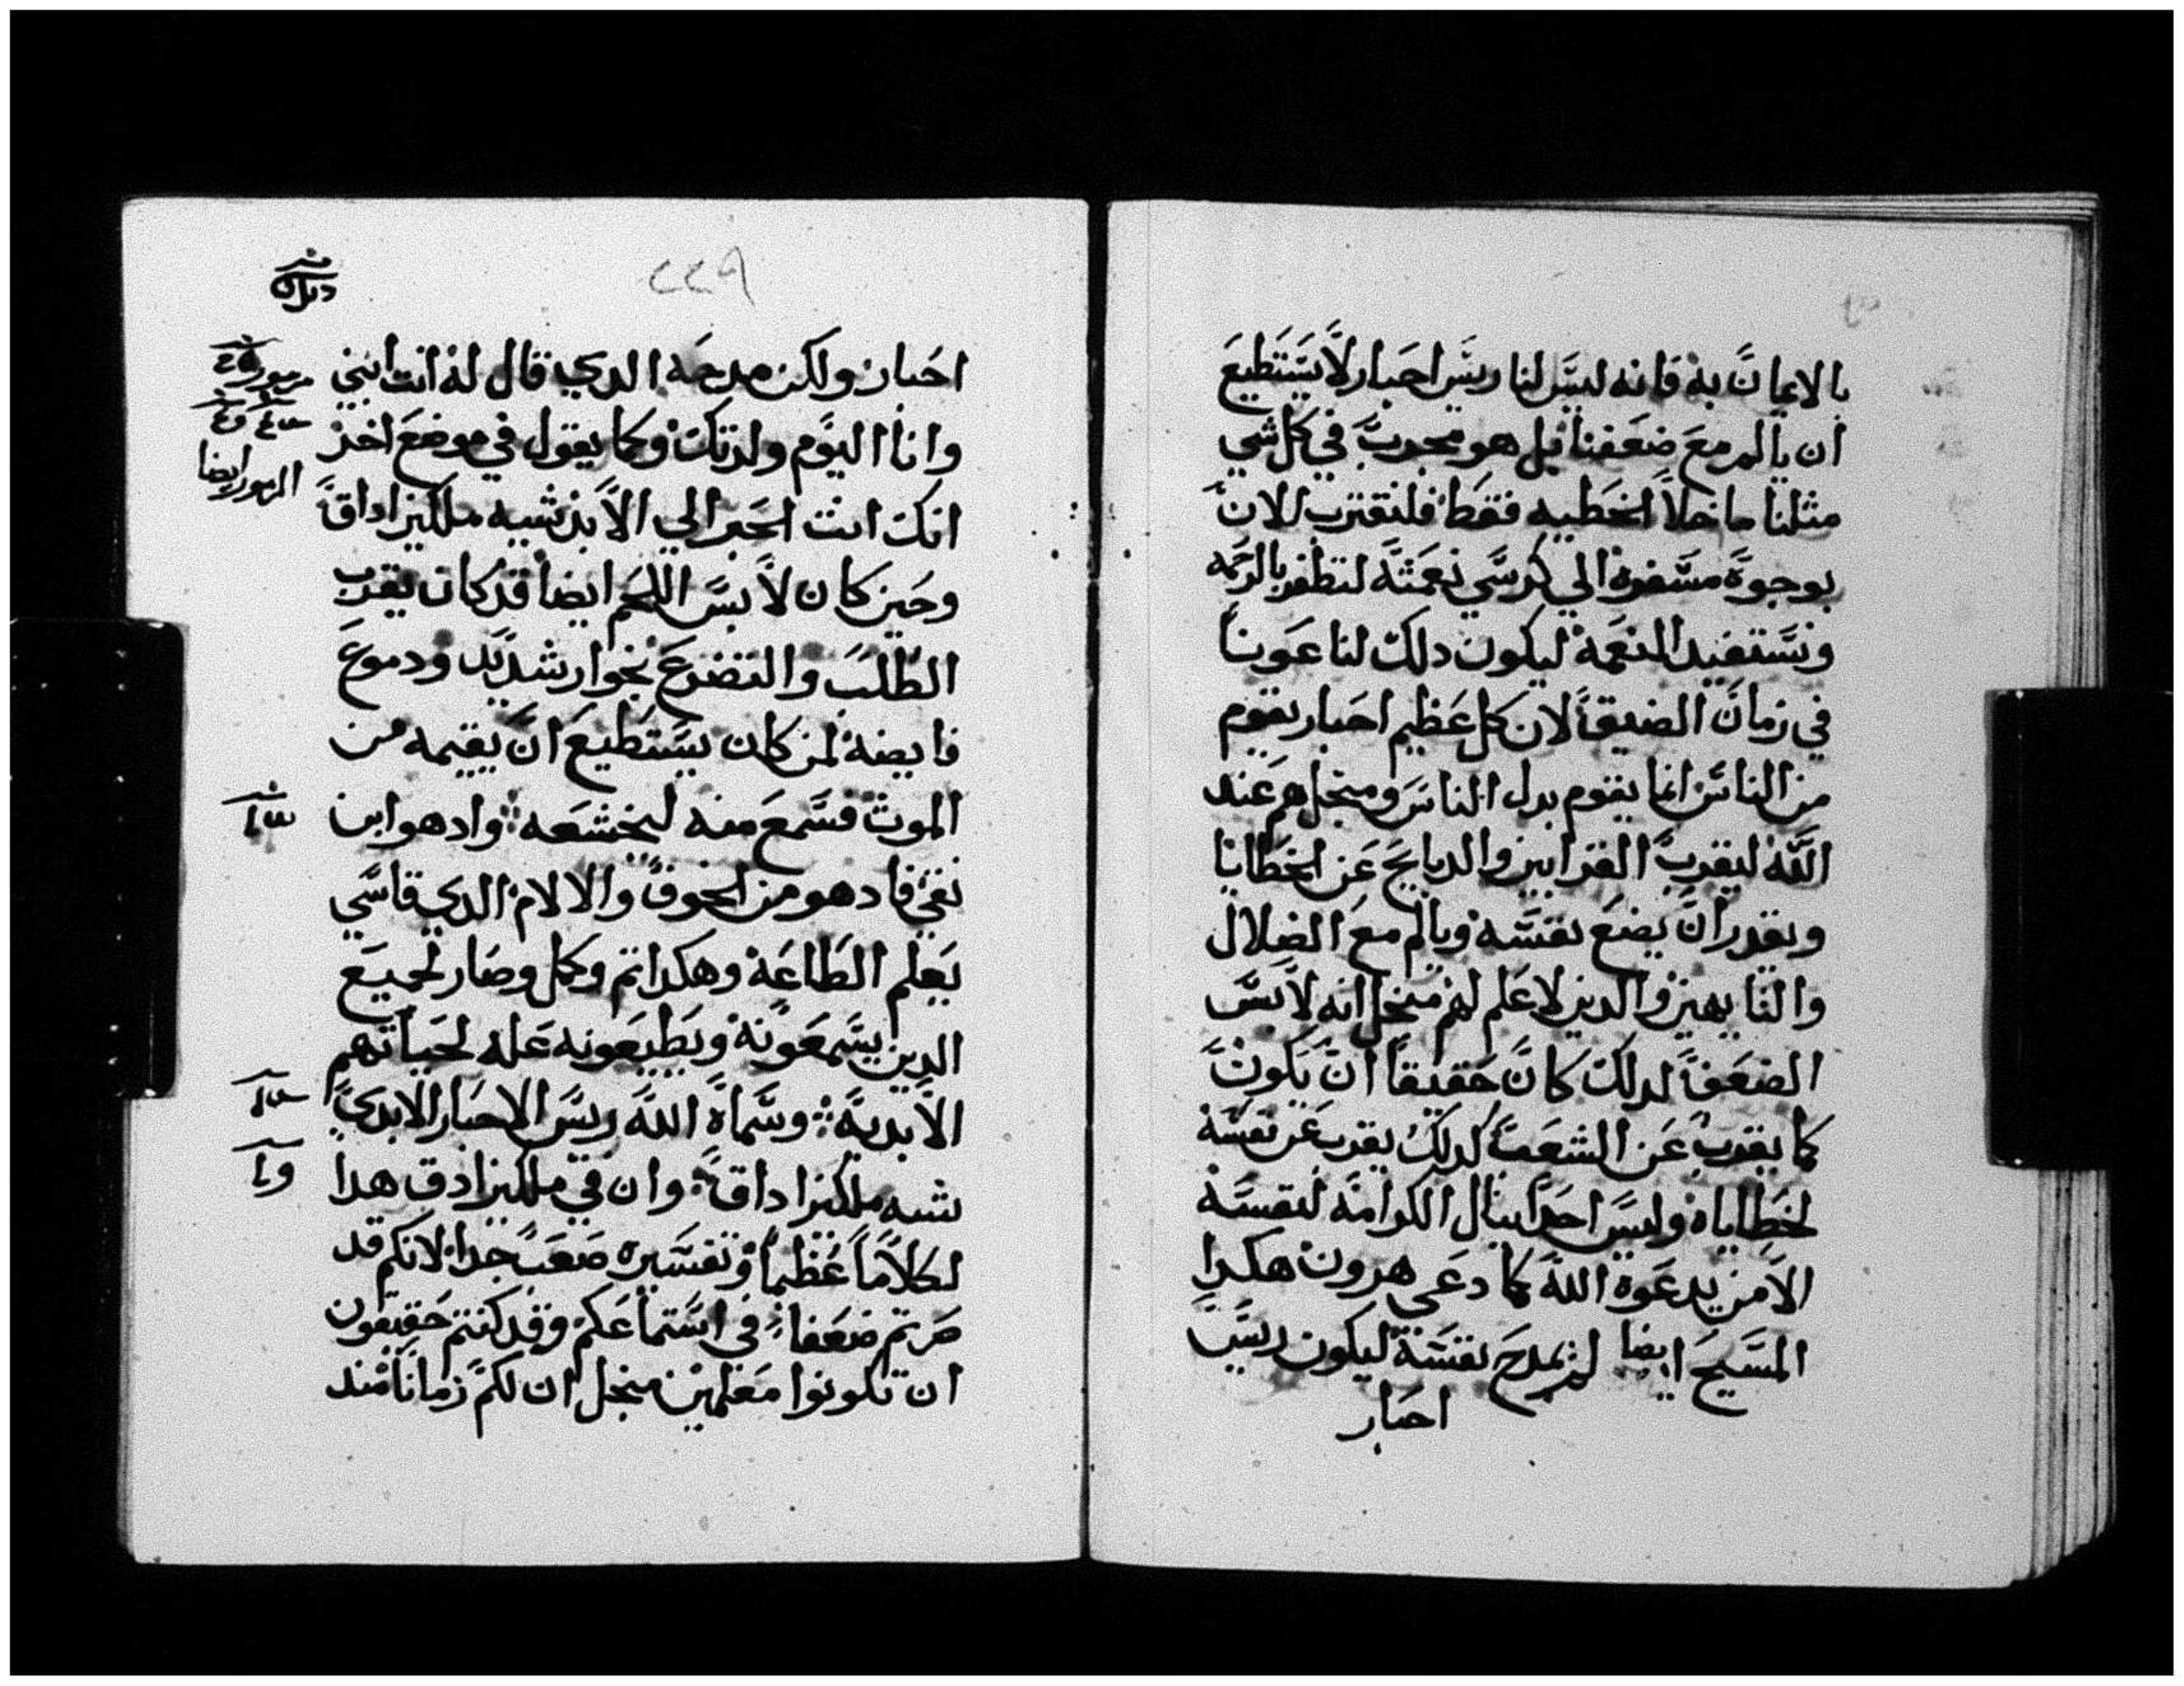 بالايمان به فانه ليس لنا ريس احبار لا يستطيع
ان يالم مع ضعفنا بل هو مجرب في كل شي
مثلنا ما خلا الخطيه فقط فلنقترب الان
بوجوة مسفرة الي كرسي نعمته لنظفر بالرحمه
ونستفيد النعمة ليكون دلك لنا عونا
في زمان الضيق لان كل عظيم احبار يقوم
من الناس انما يقوم بدل الناس ومنجلهم عند
الله ليقرب القرابين والدبايح عن الخطايا
ويقدر ان يضع نفسه ويالم مع الضلال
والتايهين والدين لا علم لهم منجل انه لابس
الضعف لدلك كان حقيقا ان يكون
كما يقرب عن الشعب كدلك يقرب عن نفسه
لخطاياه وليس احدا ينال الكرامة لنفسه
الا من يدعوة الله كما دعي هرون هكدا
المسيح ايضا لم يمدح نفسه ليكون ريس
احبار
٢٢٩
احبار ولكن مدحه الدي قال له انت ابني
وانا اليوم ولدتك وكما يقول في موضع اخر
انك انت الحبر الي الابد شبيه ملكيزاداق
وحين كان لابس اللحم ايضا قد كان يقرب
الطلب والتضرع بخوار شديد ودموع
فايضه لمن كان يستطيع ان يقيمه من
الموت فسمع منه لتخشعه واد هو ابن
نقي فادهو من الخوف والالام الدي قاسي
يعلم الطاعة وهكدا تم وكمل وصار لجميع
الدين يسمعونه ويطيعونه علة لحياتهم
الابدية وسماه الله ريس الاحبار الابدي
شبه ملكيزاداق وان في ملكيزادق هدا
لكلاما عظيما وتفسيره صعب جدا لانكم قد
صرتم ضعفا في استماعكم وقد كنتم حقيقون
ان تكونوا معلمين منجل ان لكم زمانا مند
الزبور ايضا